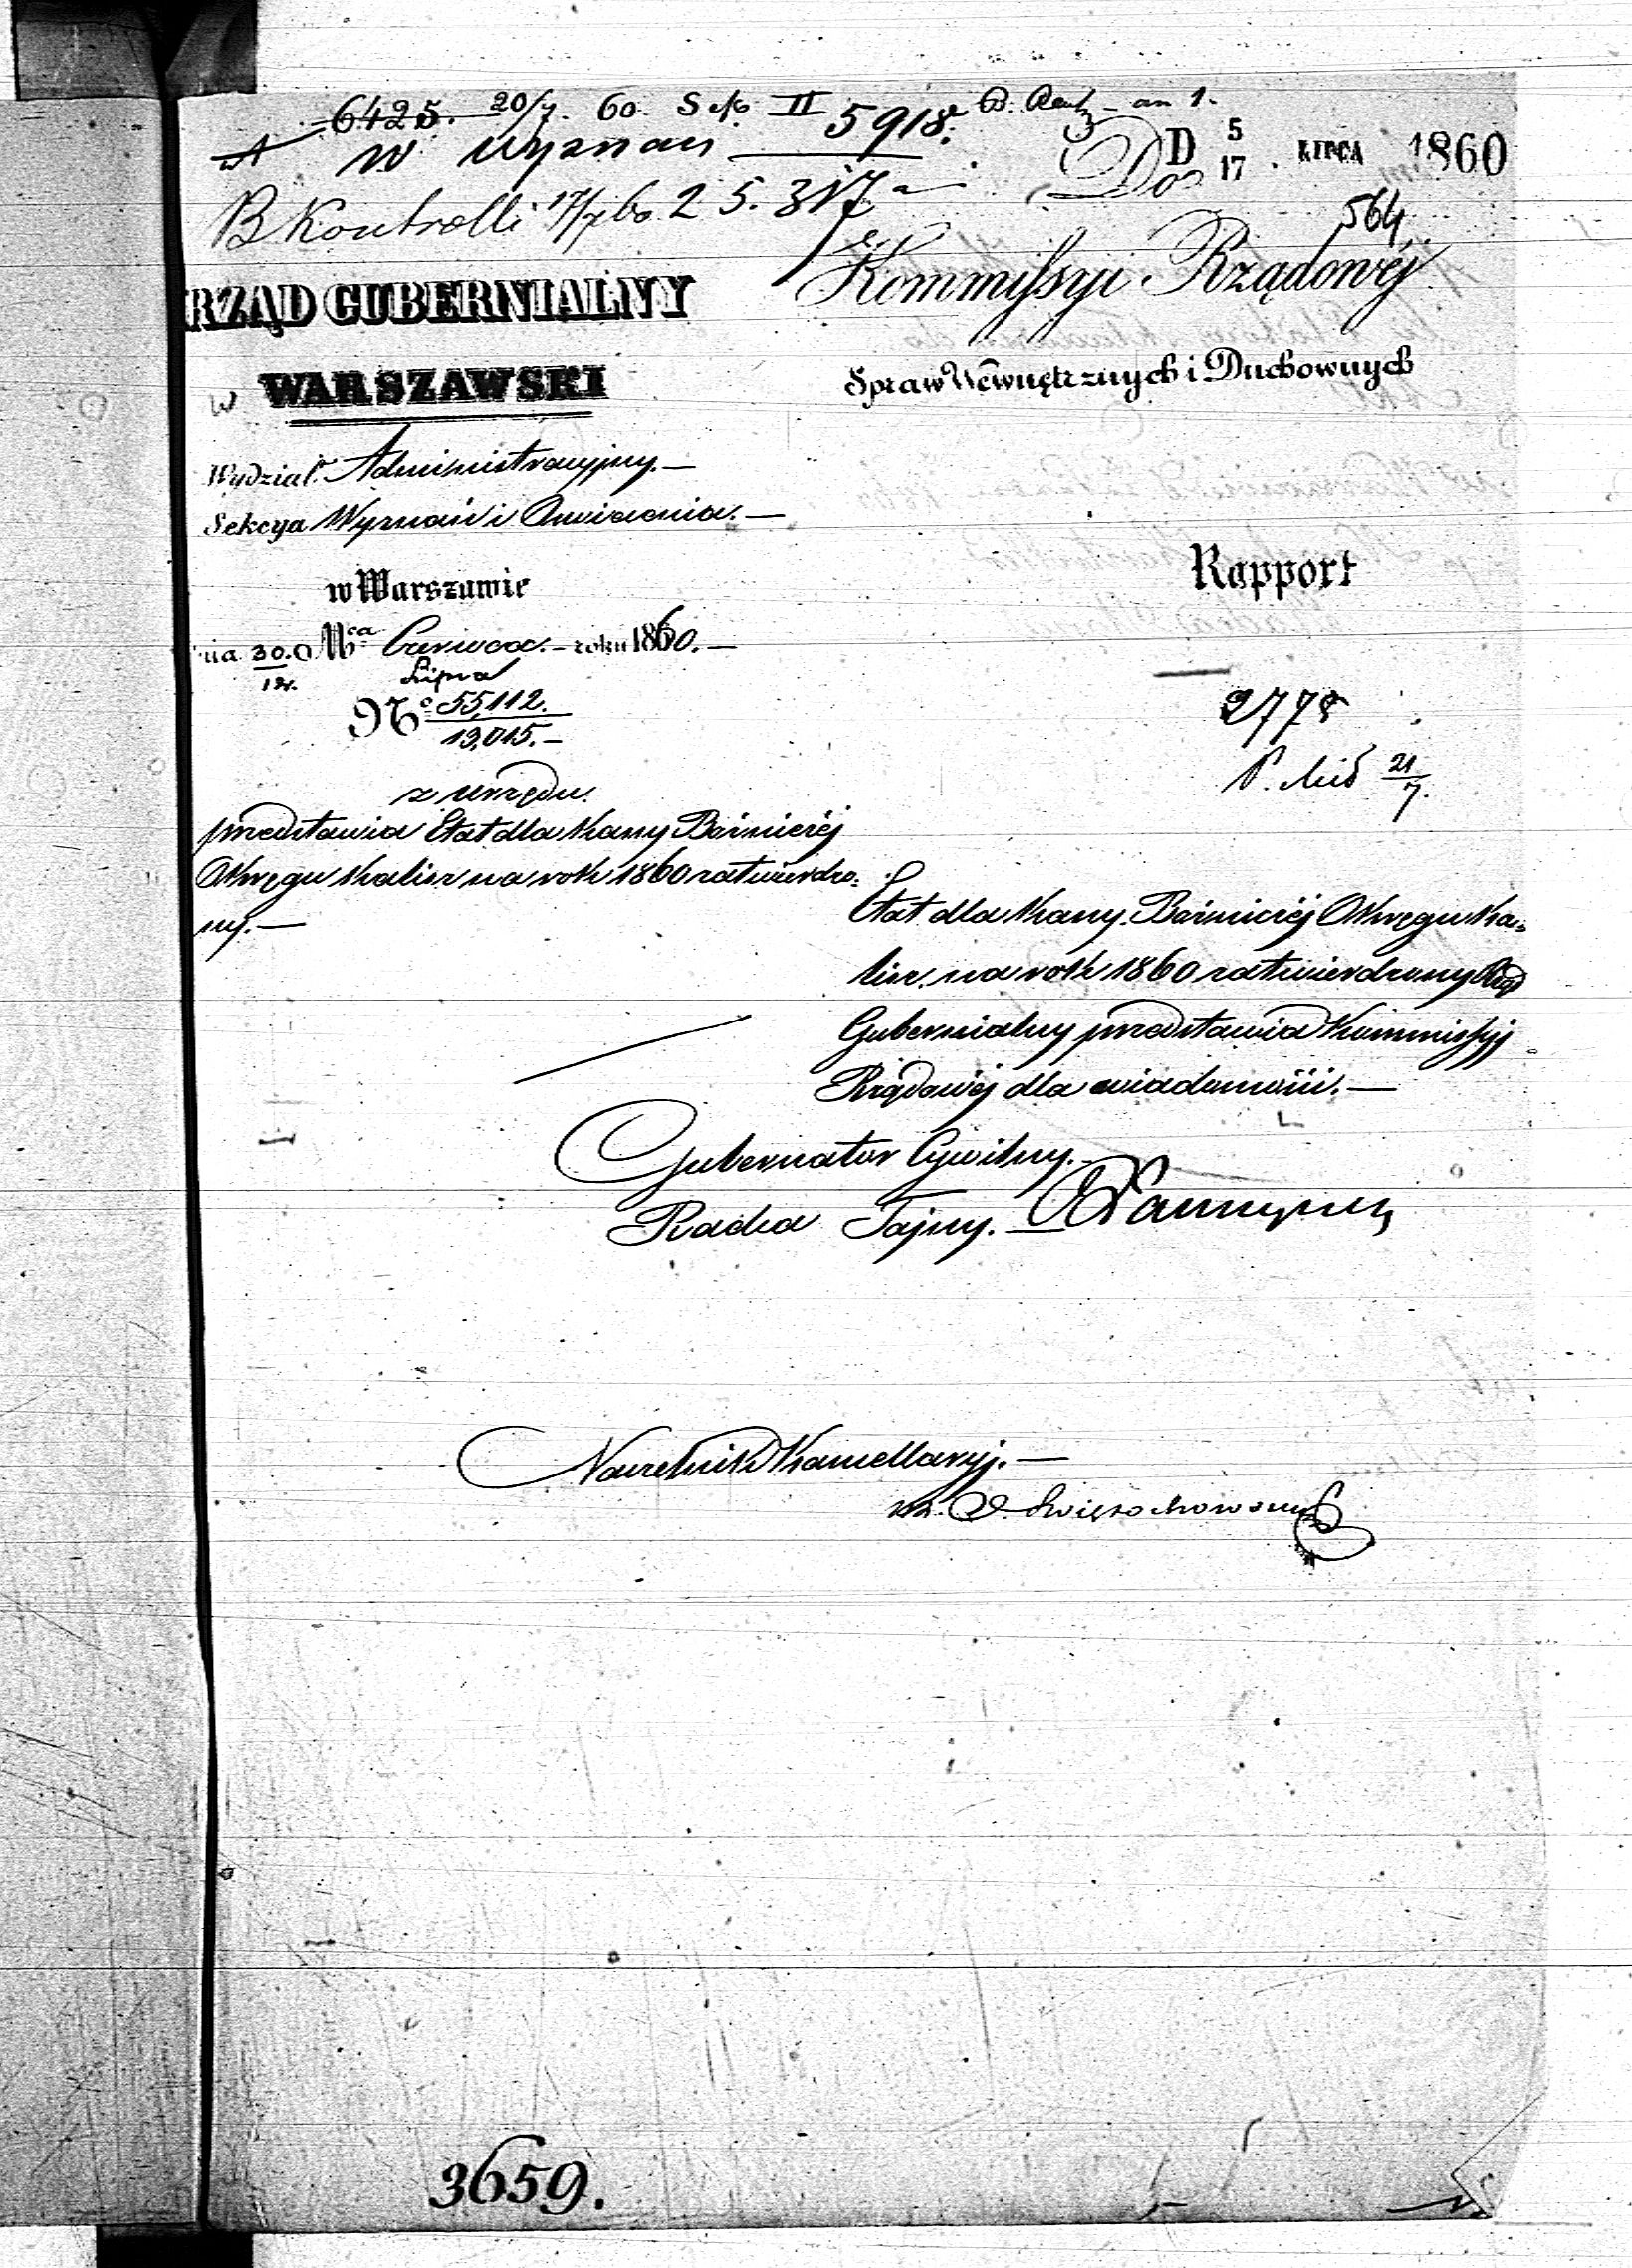 6425. 20/7. 60. Sek. II 5918.
W. Wyznań
D 5/17 LIPCA 1860
B Kontrolli 17/7 60 2 5. 317
564
Do
Kommissyi Rządowéj
Spraw Wewnętrznych i Duchownych
RZĄD GUBERNIALNY
WARSZAWSKI
Wydział Administracyjny.—
Sekcya Wyznań i Oswiecenia.—
w Warszawie
nia 30./12. Mca Czerwca/Lipca roku 1860.—
No 55,112./19,015.—
z urzędu.
przedstawia Etat dla Kassy Bożniczéj
Okręgu Kalisz na rok 1860 zatwierdzo=
ny.—
Rapport
2778
21/7.
Etat dla Kassy Bożniczéj Okręgu Ka=
lisz. na rok 1860 zatwierdzony Rząd
Gubernialny przedstawia Kommissyj
Rządowéj dla wiadomości.—
Gubernator Cywilny.
Radca Tajny.
Naczelnik Kancellaryj.—
3659.